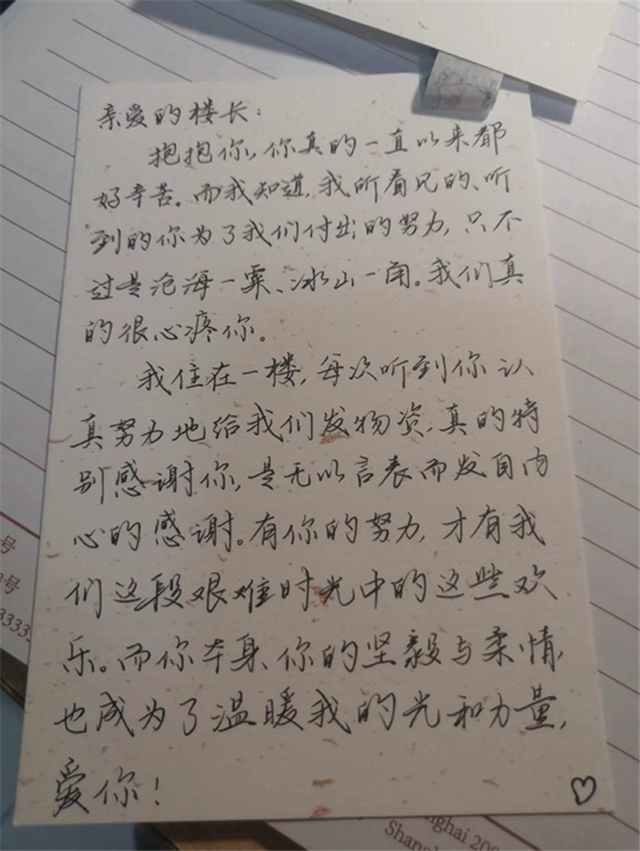 亲爱的楼长:
抱抱你,你真的一直以来都
好辛苦。而我知道,我所看见的、听
到的你为了我们付出的努力,只不
过是沧海一粟、冰山一角。我们真
的很心疼你。
我住在一楼,每次听到你认
真努力地给我们发物资,真的特
别感谢你,是无以言表而发自内
心的感谢。有你的努力,才有我
们这段艰难时光中的这些欢
乐。而你本身、你的坚毅与柔情,
也成为了温暖我的光和力量,
爱你!
号
号
3333
ghai 200
Shang